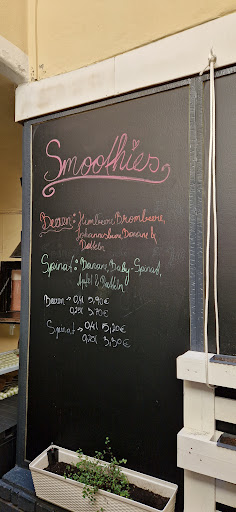 Smoothies
Beeren: Himbeere, Brombeere,
Johannisbeere, Banane &
Datteln
Spinat: Banane, Baby-Spinat,
Apfel & Datteln
Beeren → 0,4l 5,90€
0,25l 3,70€
Spinat → 0,4l 5,20€
0,25l 3,50€